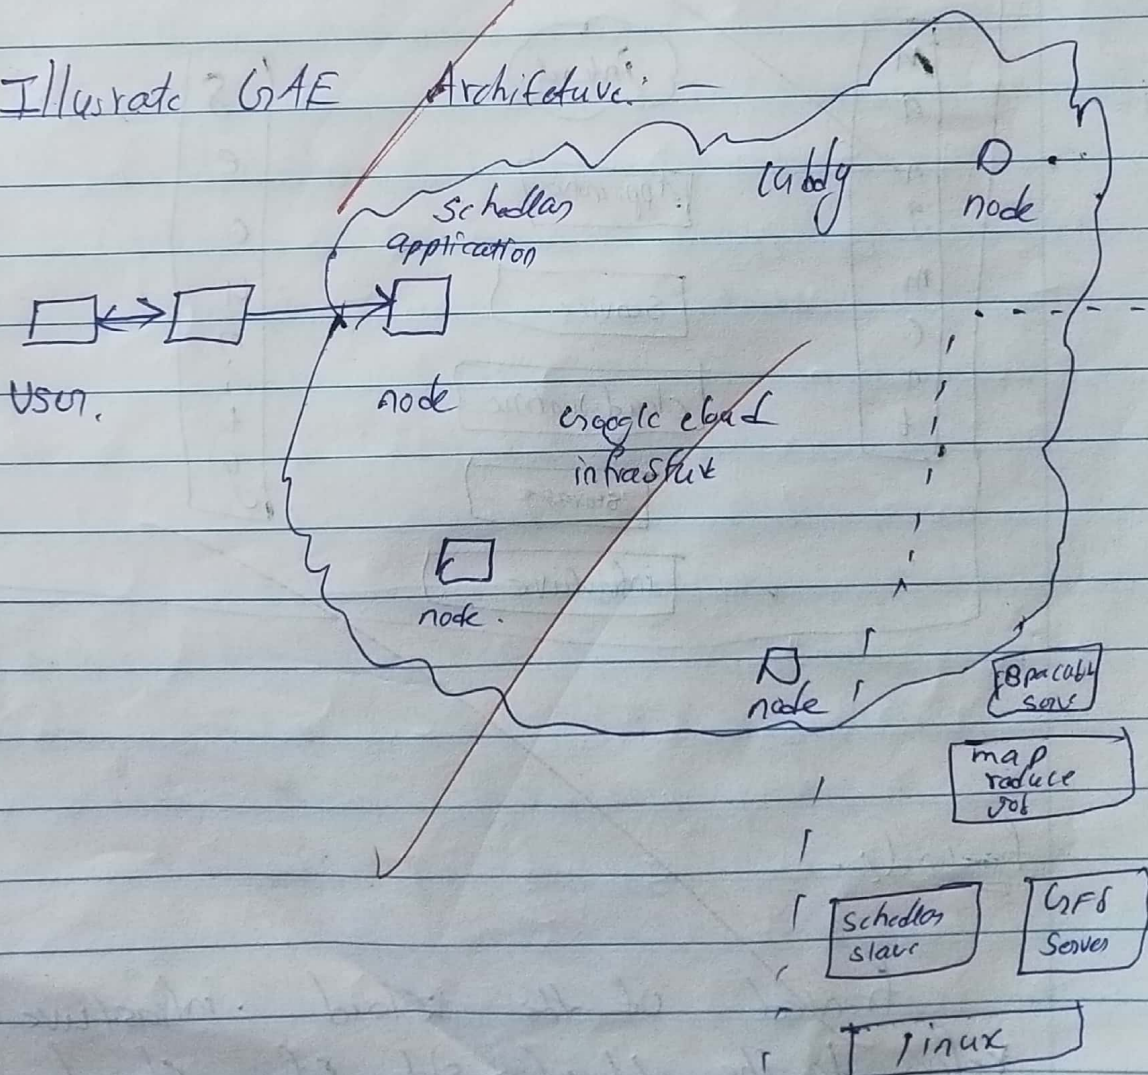 Illusrate GAE Architeture: -
schedlar
application
node
User.
node
google cloud
infrastuk
node.
node
map
raduce
Job
Schedlar
slave
GFS
Server
linux